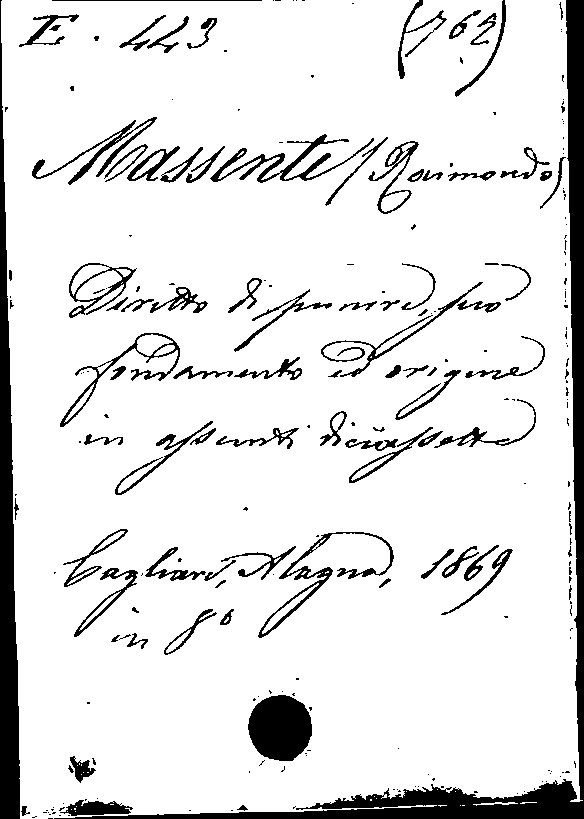 E. 443 (762)
Massente (Raimondo)
Diritto di punire, suo
fondamento ed origine
in assunti diciassette
Cagliari, Alagna, 1869
in 8°